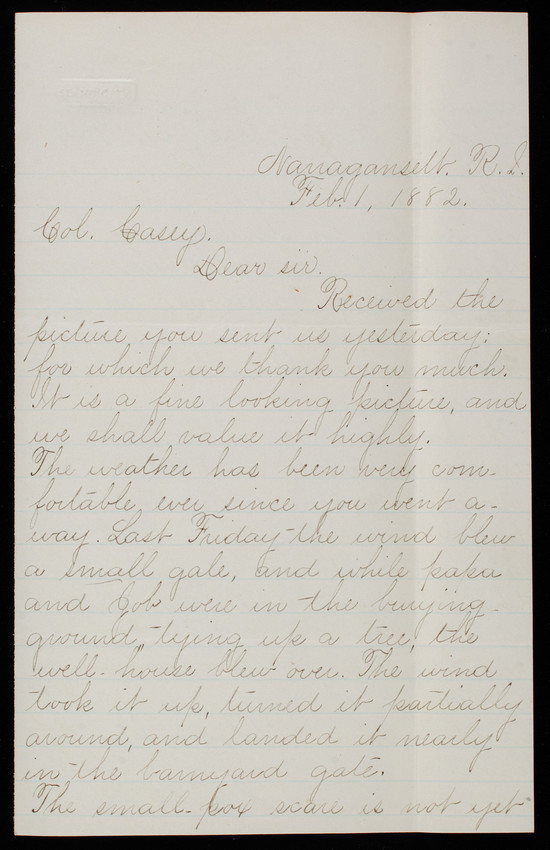 Narragansett. R.I.
Feb. 1, 1882.
Col. Casey.
Dear sir.
Received the
picture you sent us yesterday;
for which we thank you much.
It is a fine looking picture, and
we shall value it highly.
The weather has been very com-
fortable ever since you went a-
way. Last Friday the wind blew
a small gale, and while papa
and were in the burying-
ground, tying up a tree, the
well-house blew over. The wind
took it up, turned it partially
around, and landed it nearly
in the barnyard gate.
The small-pox scare is not yet